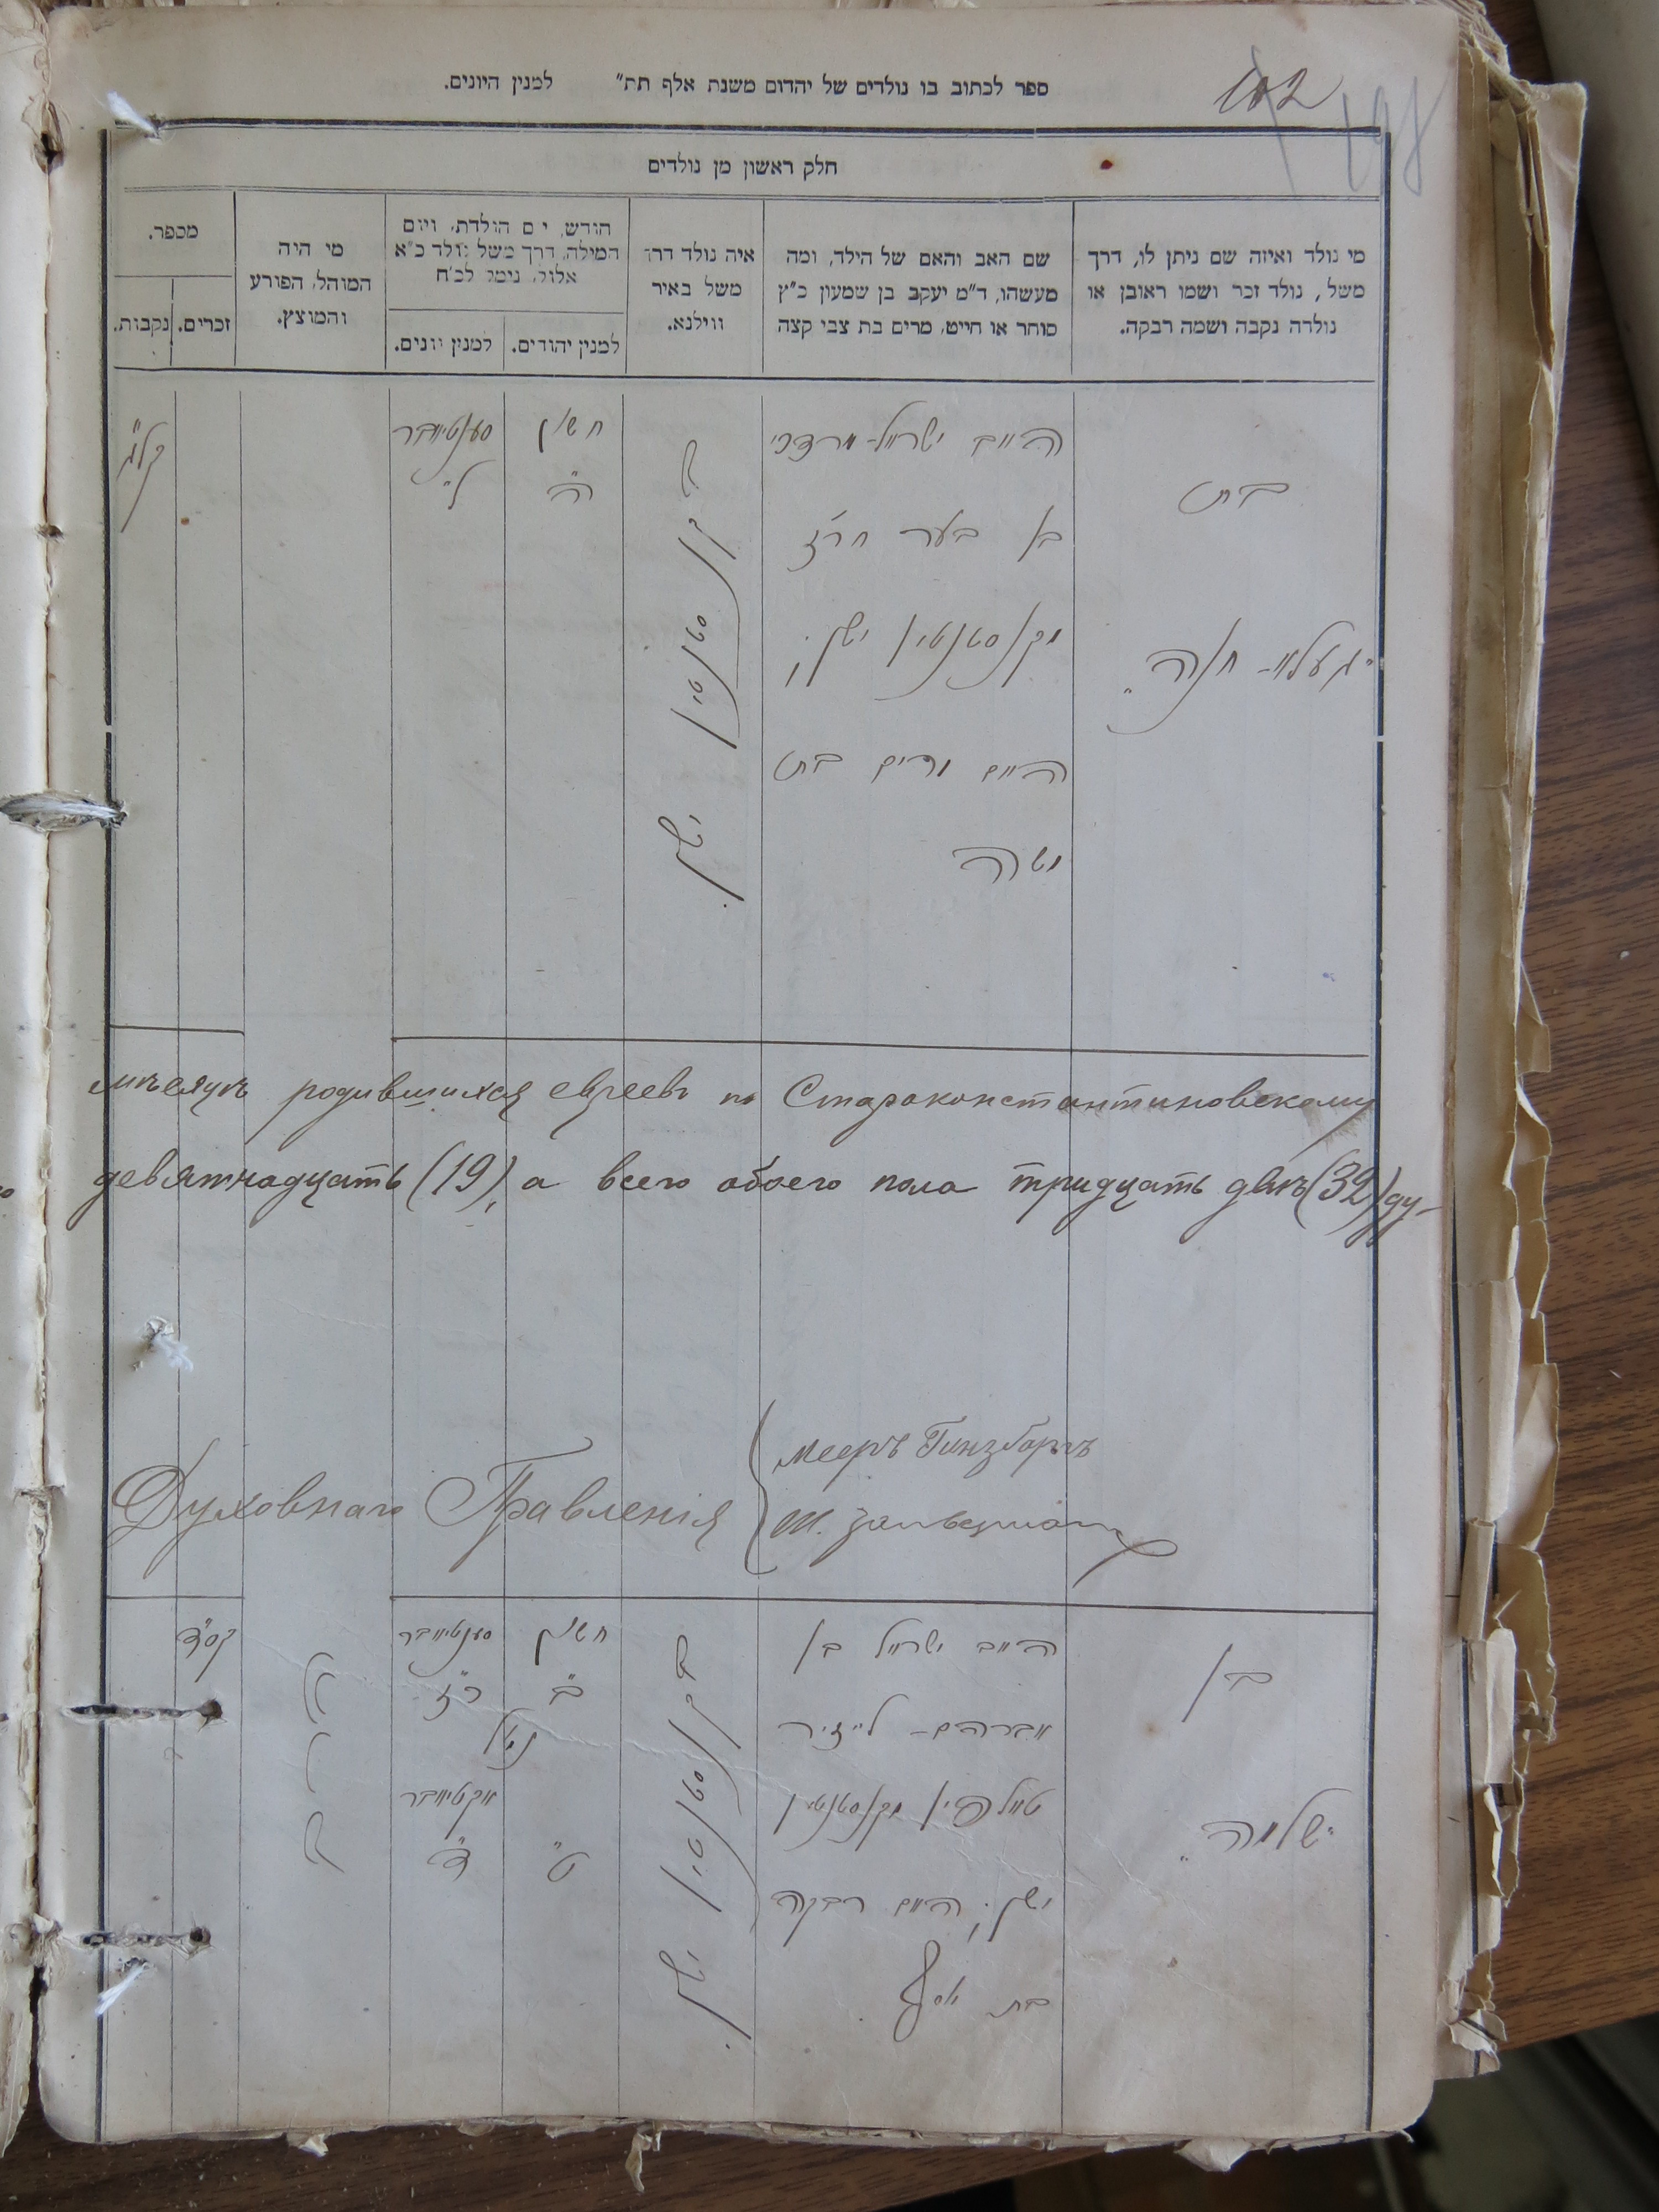 ספר לכתוב בו נולדים של יהדום משנת אלף תת״ למנין היונים.
102
חלק ראשון מן נולדים
מי נולד ואיזה שם ניתן לו, דרך
משל, נולד זכר ושמו ראובן או
נולדה נקבה ושמה רבקה.
שם האב והאם של הילד, ומה
מעשהו, ד״מ יעקב בן שמעון כ״ץ
סוחר או חייט, מרים בת צבי קצה
איה נולד דרך
משל באיר
ווילנא.
חודש, יום הולדת, ויום
המילה, דרך משל נולד כ״א
אלול, נימל לכ״ח
למנין יהודים.
למנין יונים.
מי היה
המוהל, הפורע
והמוצץ.
מספר.
זכרים.
נקבות.
בת
חנה
האב ישראל-מרדכי
בן בער
מקאנסטאנטין ישן;
האם מרים בת
משה
בקאנסטאנטין ישן.
חשון
ה״
סענטיאבר
ל״
קל״ג
мѣсяцъ родившихся евреевъ по Староконстантиновскому
девятнадцать (19), а всего обоего пола тридцать двѣ (32) ду-
Духовнаго Правленія
Мееръ Гинзбургъ
בן
שלמה
האב ישראל בן
אברהם- לייזיר
מקאנסטאנטין
ישן; האם רבקה
בת יוסף
בקאנסטאנטין ישן.
חשון
ב״
ט״
סענטיאבר
כ״ז
נימול
אקטיאבר
ד״
קס״ד